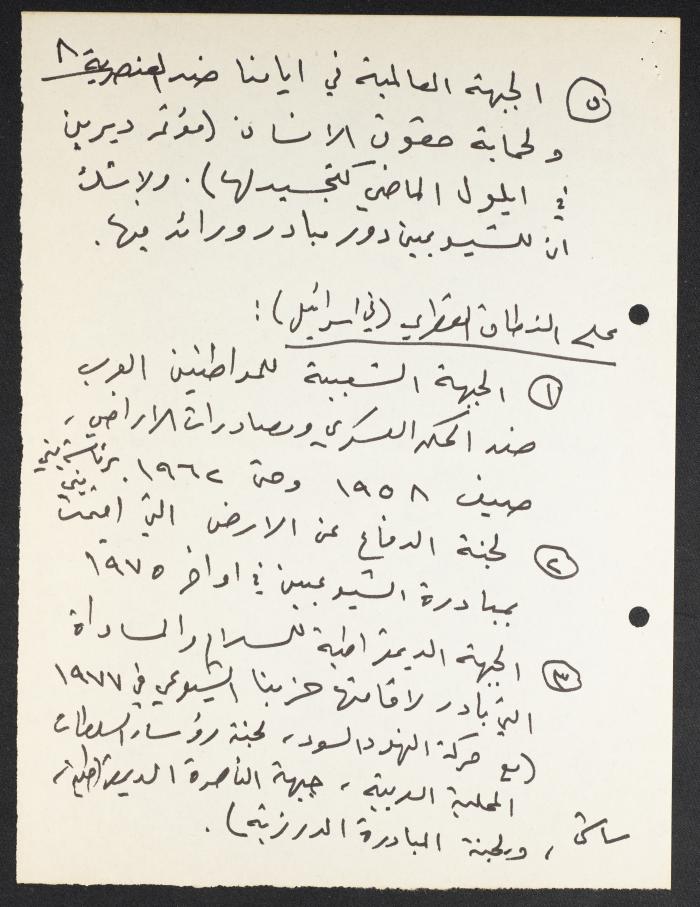 ٨
٥ الجبهة العالمية في ايامنا ضد العنصرية
ولحماية حقوق الانسان (مؤتمر ديربن
في ايلول الماضي كتجسيد لها). ولا شك
ان للشيوعيين دور مبادر ورائد فيها.
على النطاق القطري (في اسرائيل):
١ الجبهة الشعبية للمواطنين العرب
ضد الحكم العسكري ومصادرات الاراضي،
صيف ١٩٥٨ وحتى ١٩٦٢. برئاسة يني يني
٢ لجنة الدفاع عن الارض التي اقيمت
بمبادرة الشيوعيين في اواخر ١٩٧٥
٣ الجبهة الديمقراطية للسلام والمساواة
التي بادر لاقامتها حزبنا الشيوعي في ١٩٧٧
(مع حركة الفهود السود، لجنة رؤساء السلطات
المحلية العربية، جبهة الناصرة الديمقراطية،
، ولجنة المبادرة الدرزية).